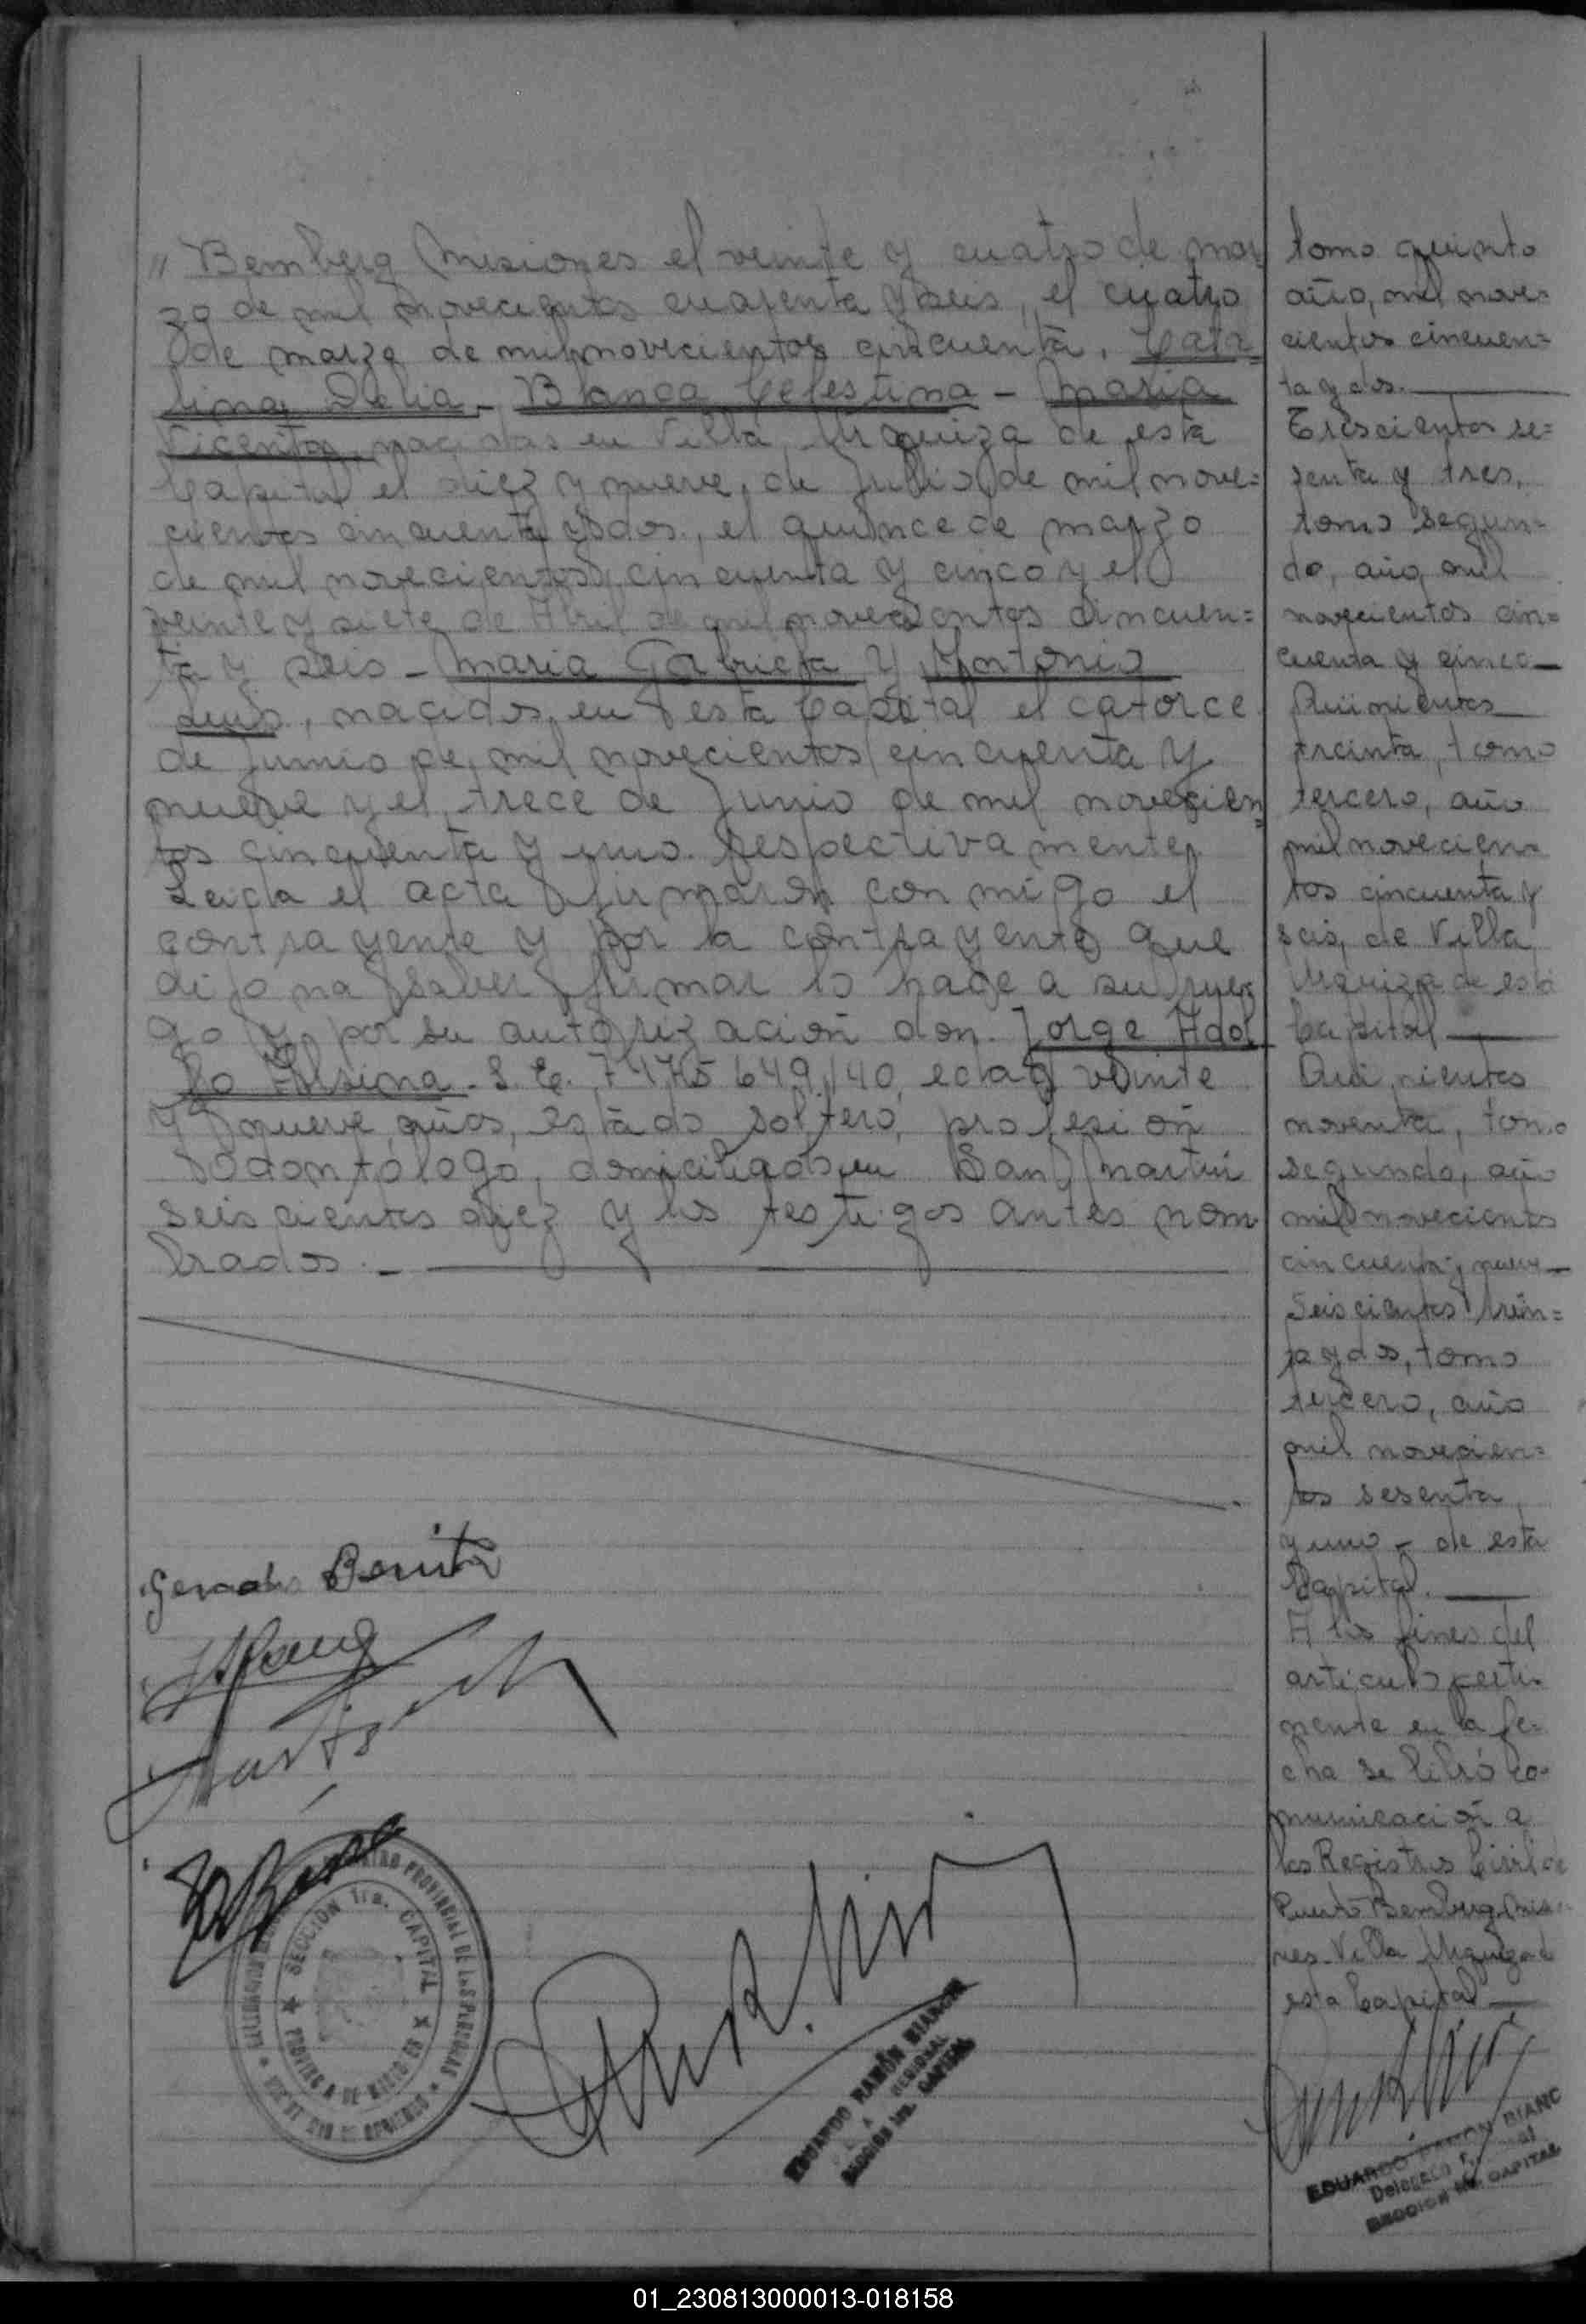 " Bemberg Misiones el veinte y cuatro de mar
zo de mil novecientos cuarenta y seis, el cuatro
de marzo de mil novecientos cincuenta. Cata
lina Delia - Blanca Celestina - Maria
Vicenta, nacidas en Villa Urquiza de esta
Capital el diez y nueve de Julio de mil nove=
cientos cincuenta y dos, el quince de marzo
de mil novecientos cincuenta y cinco y el
veinte y siete de Abril de mil novecientos cincuen=
ta y seis - Maria Gabriela y Antonio
Luis, nacidos en esta Capital el catorce
de Junio de mil novecientos cincuenta y
nueve y el trece de Junio de mil novecien=
tos cincuenta y uno respectivamente
Leida el acta firmaron con migo el
contrayente y por la contrayente que
dijo na saber firmar lo hace a su rue
go y por su autorización don Jorge Adol
fo Alsina - edad veinte
y nueve años, estado soltero, profesión
Odontólogo, domiciliado en San Martin
seiscientos diez y los testigos antes nom
brados. -
tomo quinto
año, mil nove=
cientos cincuen=
ta y dos.
Trescientos se=
senta y tres,
tomo segun=
do, año mil
novecientos cin=
cuenta y cinco
Quinientos
treinta, tomo
tercero, año
mil novecien=
tos cincuenta y
seis, de Villa
Urquiza de esta
Capital
Quinientos
noventa, tomo
segundo, año
mil novecientos
cincuenta y nueve
Seiscientos trein=
ta y dos, tomo
tercero, año
mil novecien=
tos sesenta
y uno - de esta
Capital.
A los fines del
articulo perti=
nente en la fe=
cha se libró co=
municación a
los Registros Civil de
Puerto Bemberg Misio=
nes - Villa Urquiza de
esta Capital
Gerardo Benitez
REGISTRO PROVINCIAL DE LAS PERSONAS
SECCION 1ra. CAPITAL
PROVINCIA DE
EDUARDO RAMÓN BIANCHI
REGIONAL
SECCION 1ra. CAPITAL
EDUARDO RAMÓN BIANC
Delegado
SECCION 1ra. CAPITAL
01_230813000013-018158